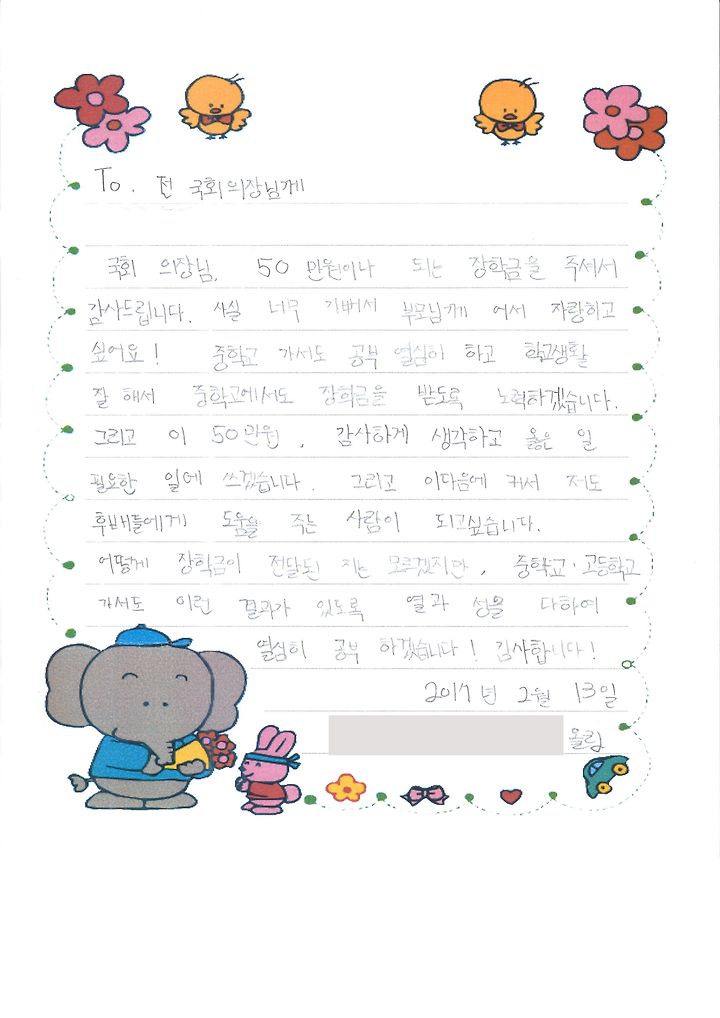 To. 전 국회의장님께
국회 의장님, 50 만원이나 되는 장학금을 주셔서
감사드립니다. 사실 너무 기뻐서 부모님께 어서 자랑하고
싶어요! 중학교 가서도 공부 열심히 하고 학교생활
잘 해서 중학교에서도 장학금을 받도록 노력하겠습니다.
그리고 이 50만원, 감사하게 생각하고 옳은 일
필요한 일에 쓰겠습니다. 그리고 이다음에 커서 저도
후배들에게 도움을 주는 사람이 되고싶습니다.
어떻게 장학금이 전달된 지는 모르겠지만, 중학교·고등학교
가서도 이런 결과가 있도록 열과 성을 다하여
열심히 공부 하겠습니다! 감사합니다!
2017년 2월 13일
올림